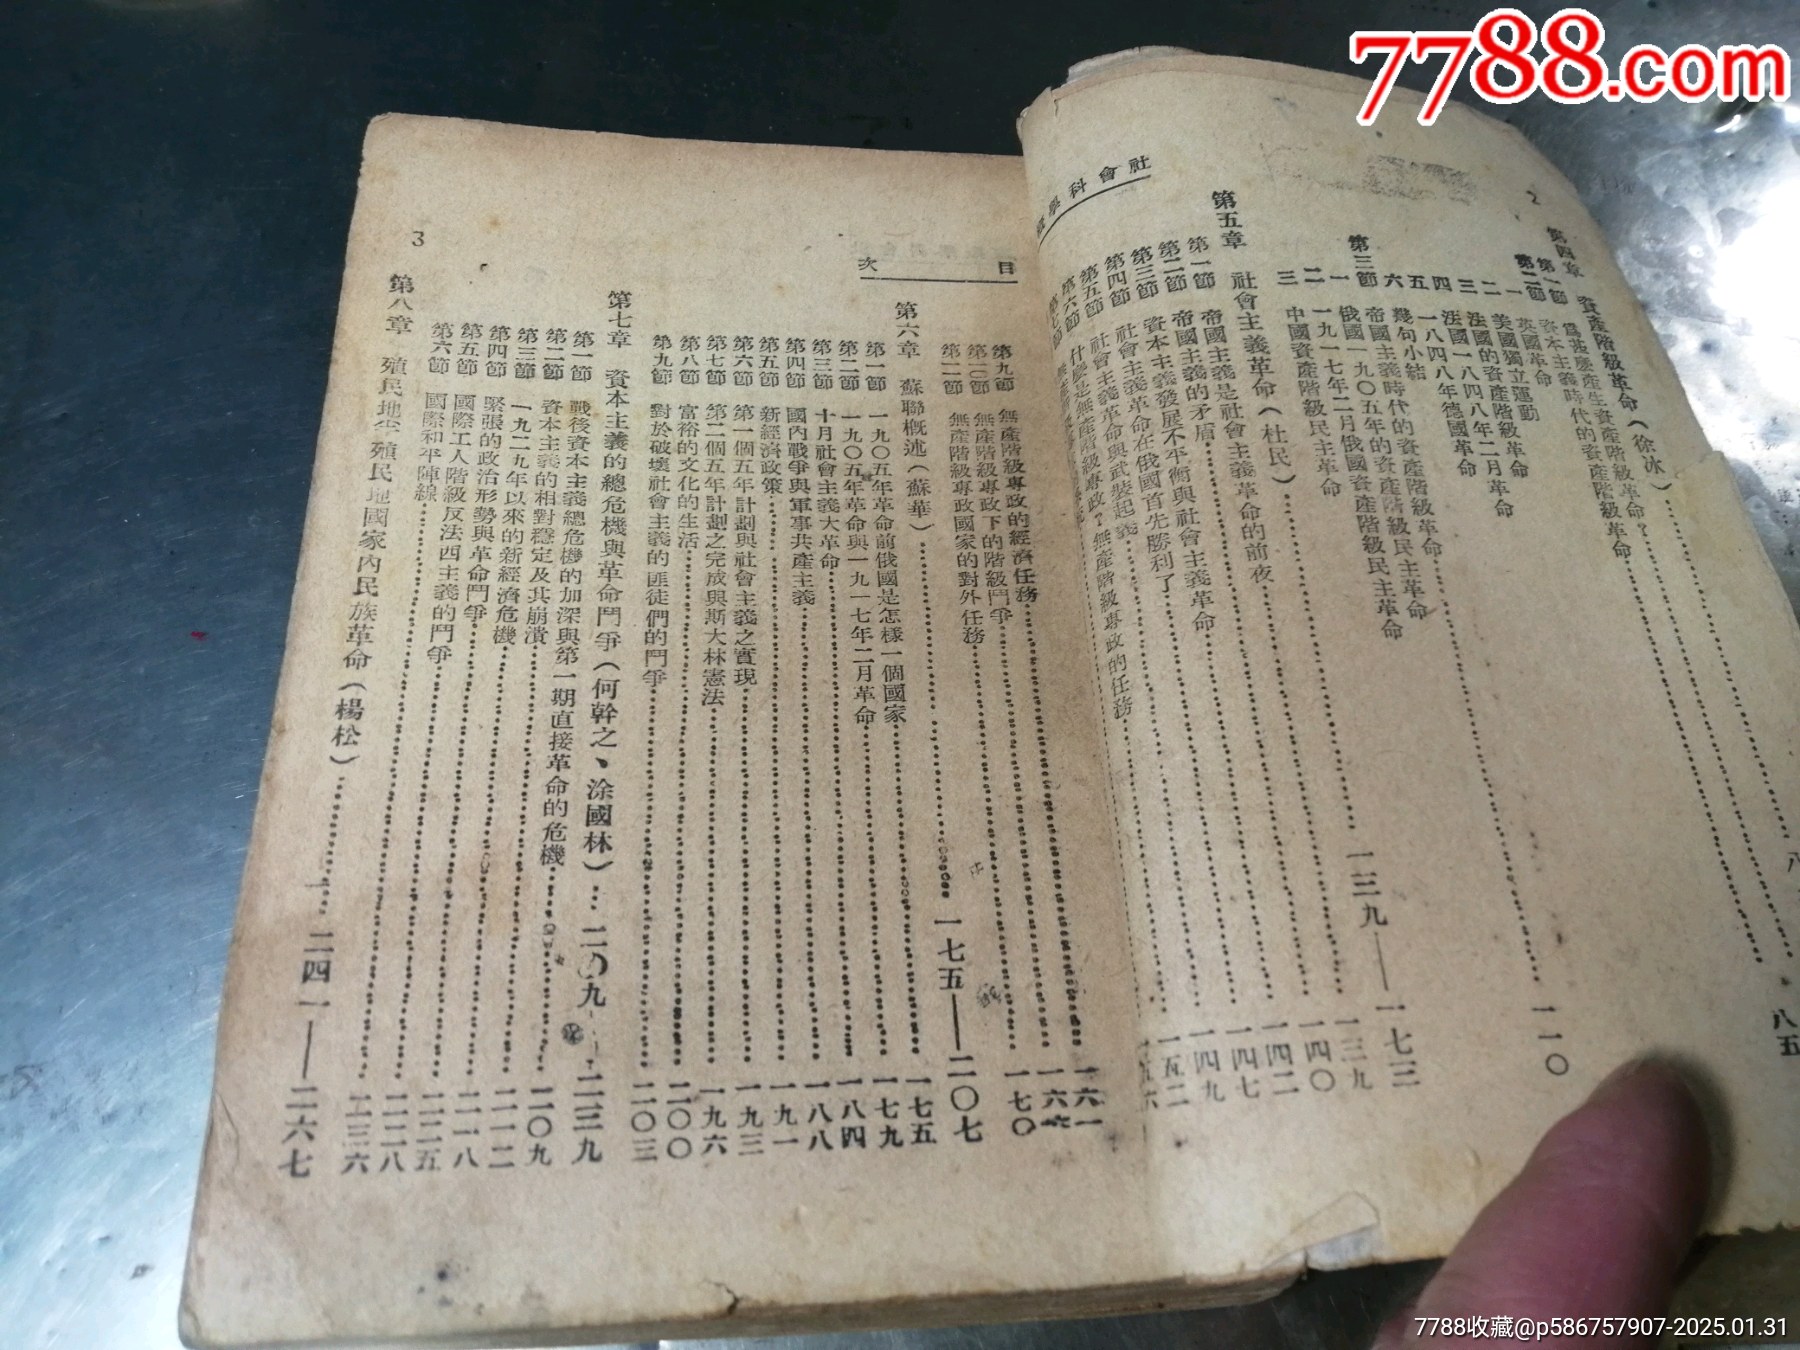 7788.com
社會科學
2
第四章 資產階級革命（徐冰） 八五
第一節 爲甚麼產生資產階級革命？
第二節 資本主義時代的資產階級革命
一 英國革命
二 美國獨立運動
三 法國的資產階級革命
四 法國一八四八年二月革命
五 一八四八年德國革命
六 幾句小結
第三節 帝國主義時代的資產階級民主革命 一一〇
一 俄國一九〇五年的資產階級民主革命
二 一九一七年二月俄國資產階級民主革命
三 中國資產階級民主革命
第五章 社會主義革命（杜民） 一三九——一七三
第一節 帝國主義是社會主義革命的前夜 一三九
第二節 帝國主義的矛盾 一四〇
第三節 資本主義發展不平衡與社會主義革命 一四二
第四節 社會主義革命在俄國首先勝利了 一四七
第五節 社會主義革命與武裝起義 一四九
第六節 什麼是無產階級專政？無產階級專政的任務 一五二
第七節
目次
第九節 無產階級專政的經濟任務 一六一
第一〇節 無產階級專政下的階級鬥爭 一六六
第一一節 無產階級專政國家的對外任務 一七〇
第六章 蘇聯概述（蘇華） 一七五——二〇七
第一節 一九〇五年革命前俄國是怎樣一個國家 一七五
第二節 一九〇五年革命與一九一七年二月革命 一七九
第三節 十月社會主義大革命 一八四
第四節 國內戰爭與軍事共產主義 一八八
第五節 新經濟政策 一九一
第六節 第一個五年計劃與社會主義之實現 一九三
第七節 第二個五年計劃之完成與斯大林憲法 一九六
第八節 富裕的文化的生活 二〇〇
第九節 對於破壞社會主義的匪徒們的鬥爭 二〇三
第七章 資本主義的總危機與革命鬥爭（何幹之、涂國林） 二〇九——二三九
第一節 戰後資本主義總危機的加深與第一期直接革命的危機 二〇九
第二節 資本主義的相對穩定及其崩潰 二一二
第三節 一九二九年以來的新經濟危機 二一八
第四節 緊張的政治形勢與革命鬥爭 二二五
第五節 國際工人階級反法西主義的鬥爭 二二八
第六節 國際和平陣線 二三六
第八章 殖民地半殖民地國家內民族革命（楊松） 二四一——二六七
3
7788收藏@p586757907-2025.01.31